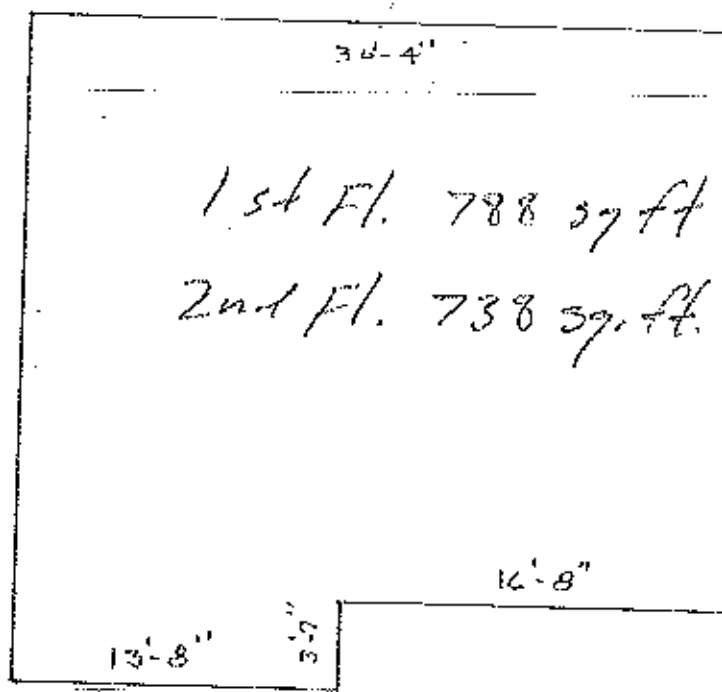 30'-4"
1st Fl. 788 sq ft
2nd Fl. 738 sq. ft.
16'-8"
3'-7"
13'-8"